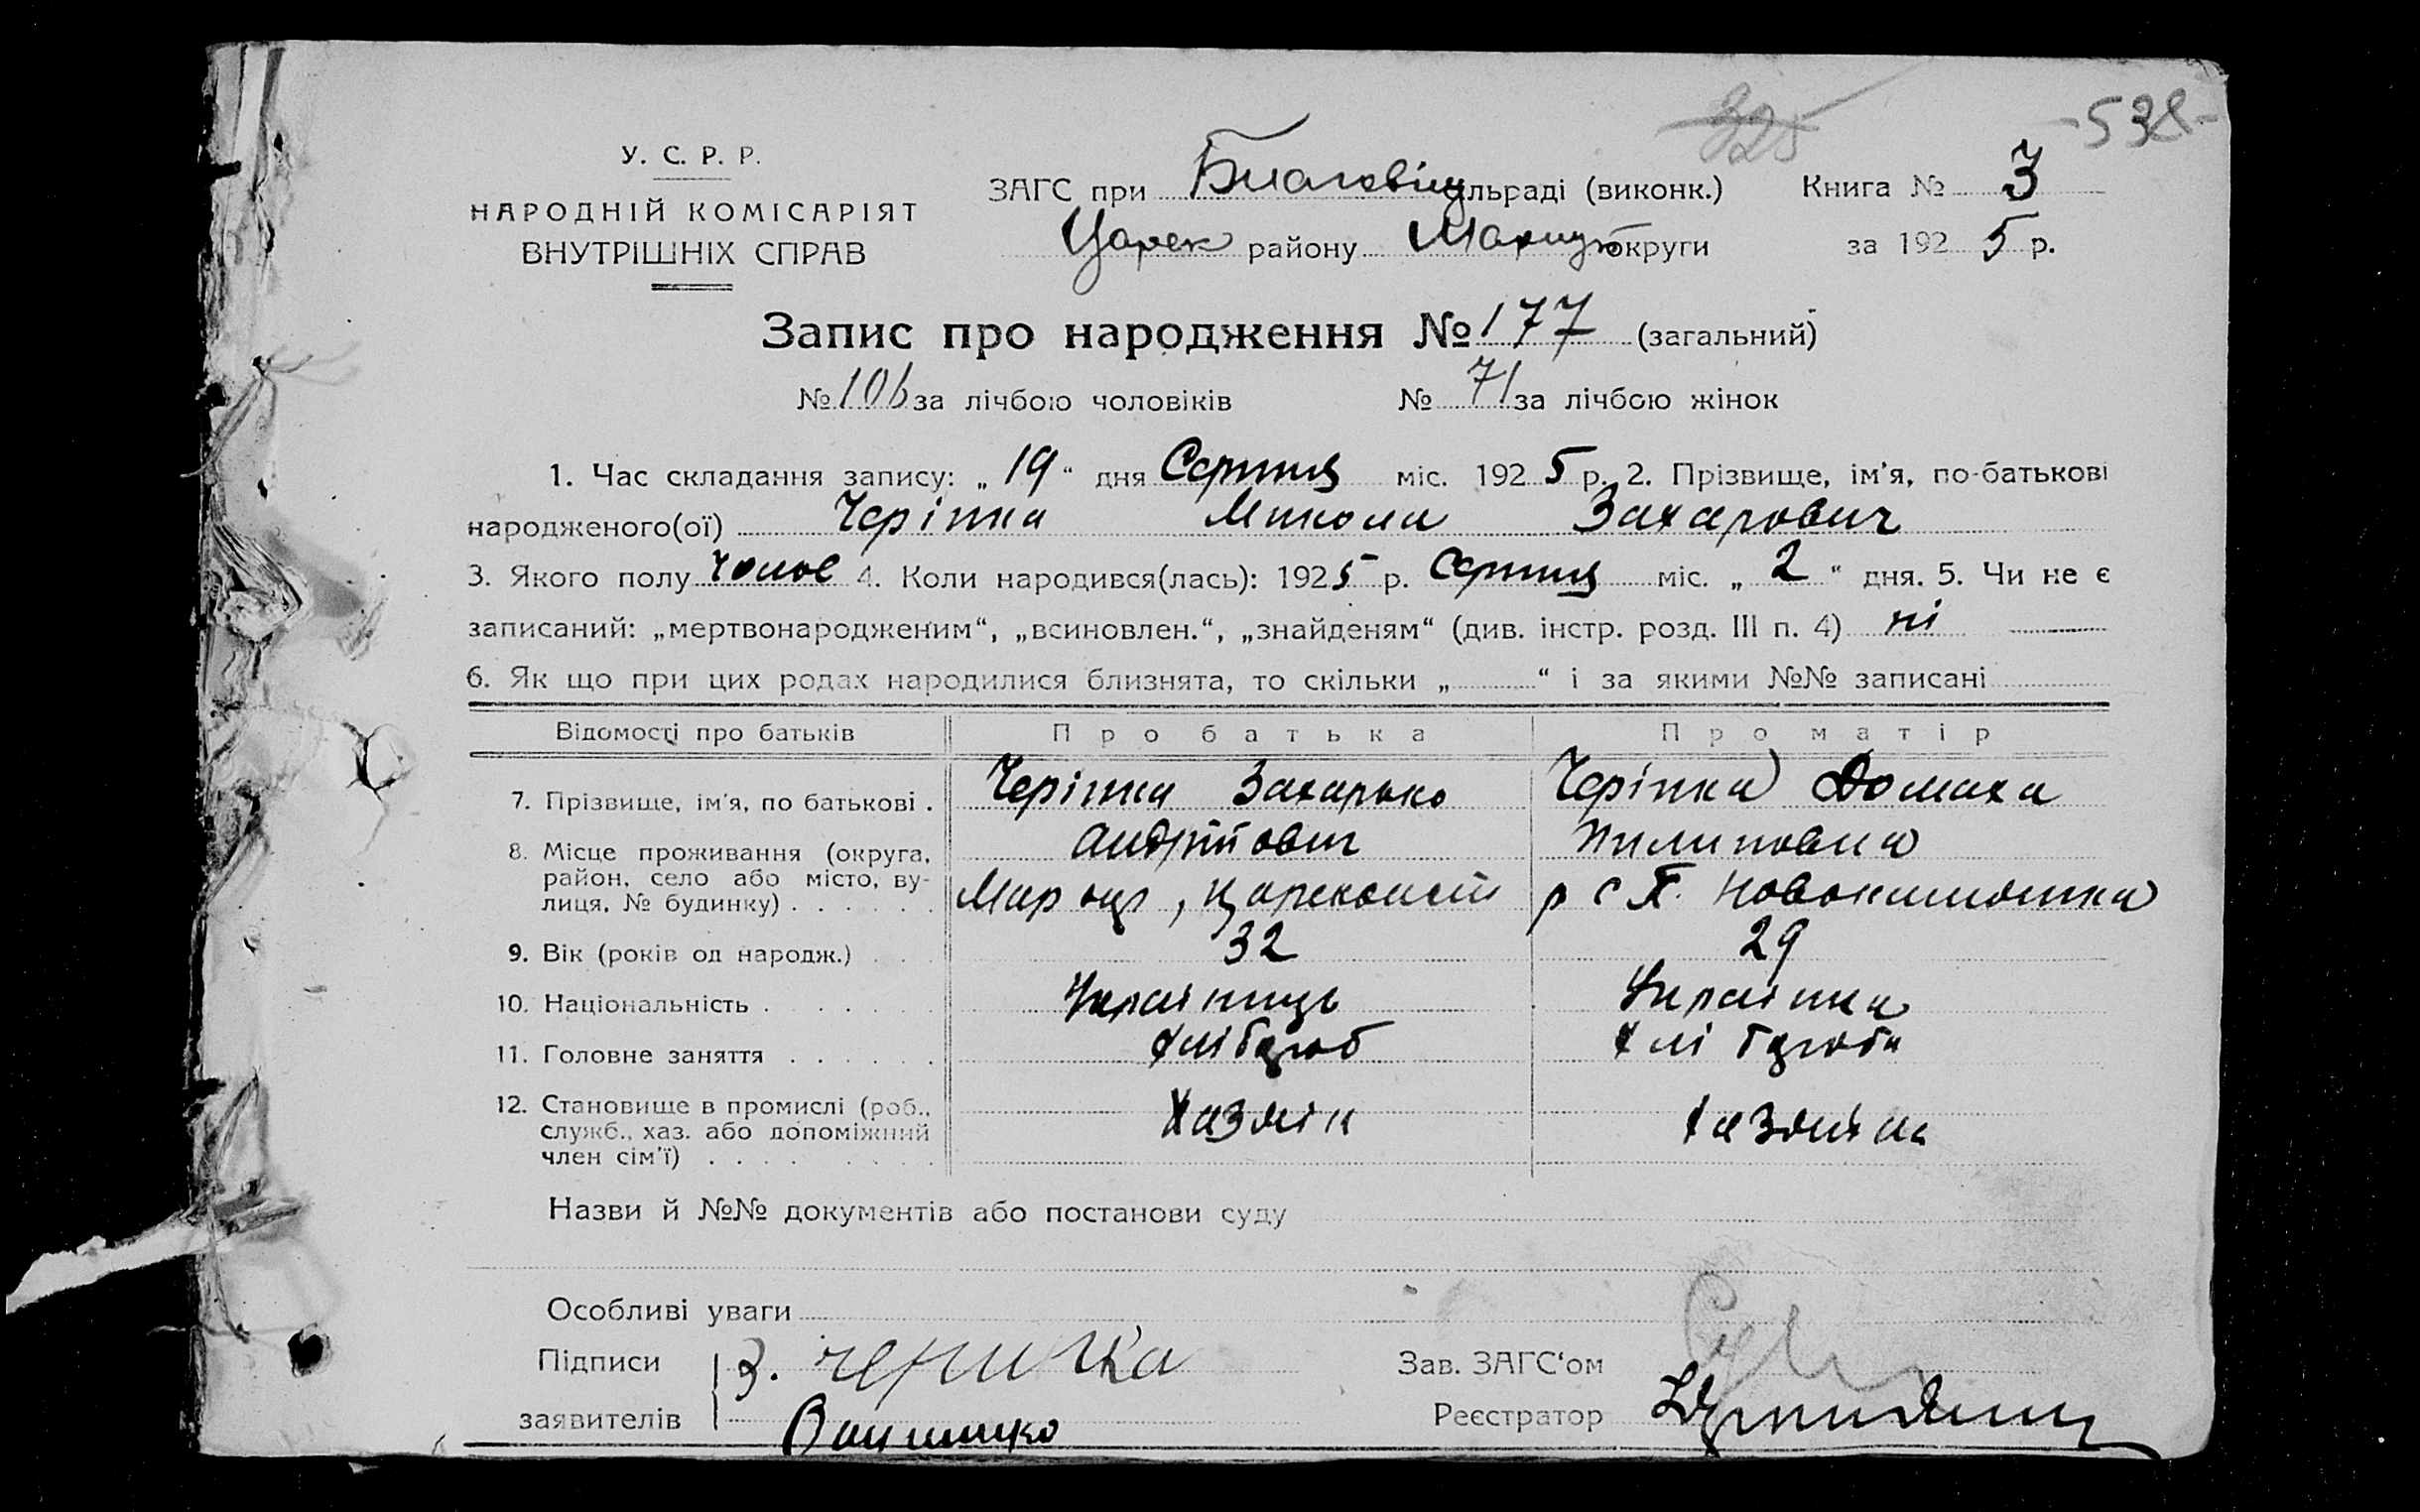 325
-538-
У. С. Р. Р.
НАРОДНІЙ КОМІСАРІЯТ
ВНУТРІШНІХ СПРАВ
ЗАГС при Благовіщ ільраді (виконк.) Книга № 3
Царек району Маріуп округи за 1925 р.
Запис про народження № 177 (загальний)
№ 106 за лічбою чоловіків № 71 за лічбою жінок
1. Час складання запису: „ 19 “ дня Серпня міс. 1925 р. 2. Прізвище, ім'я, по-батькові
народженого(ої) Черіпка Микола Захарович
3. Якого полу Чолов 4. Коли народився(лась): 1925 р. Серпня міс. „ 2 “ дня. 5. Чи не є
записаний: „мертвонародженим“, „всиновлен.“, „знайденям“ (див. інстр. розд. III п. 4) ні
6. Як що при цих родах народилися близнята, то скільки „ “ і за якими №№ записані
Відомості про батьків Про батька Про матір
7. Прізвище, ім'я, по батькові . Черіпка Захарько Черіпка Домаха
Андрійович Пилиповна
8. Місце проживання (округа,
район, село або місто, ву-
лиця, № будинку) . . . . . . Мар окр, Царекокст р с Т. Новокашмянка
9. Вік (років од народж.) . . . 32 29
10. Національність . . . . . . . Українець Українка
11. Головне заняття . . . . . . хлібороб хлібороба
12. Становище в промислі (роб.,
служб., хаз. або допоміжний
член сім'ї) . . . . . . . . Хазяїн хазяїна
Назви й №№ документів або постанови суду
Особливі уваги
Підписи З. черипка Зав. ЗАГС‘ом
заявителів Реєстратор